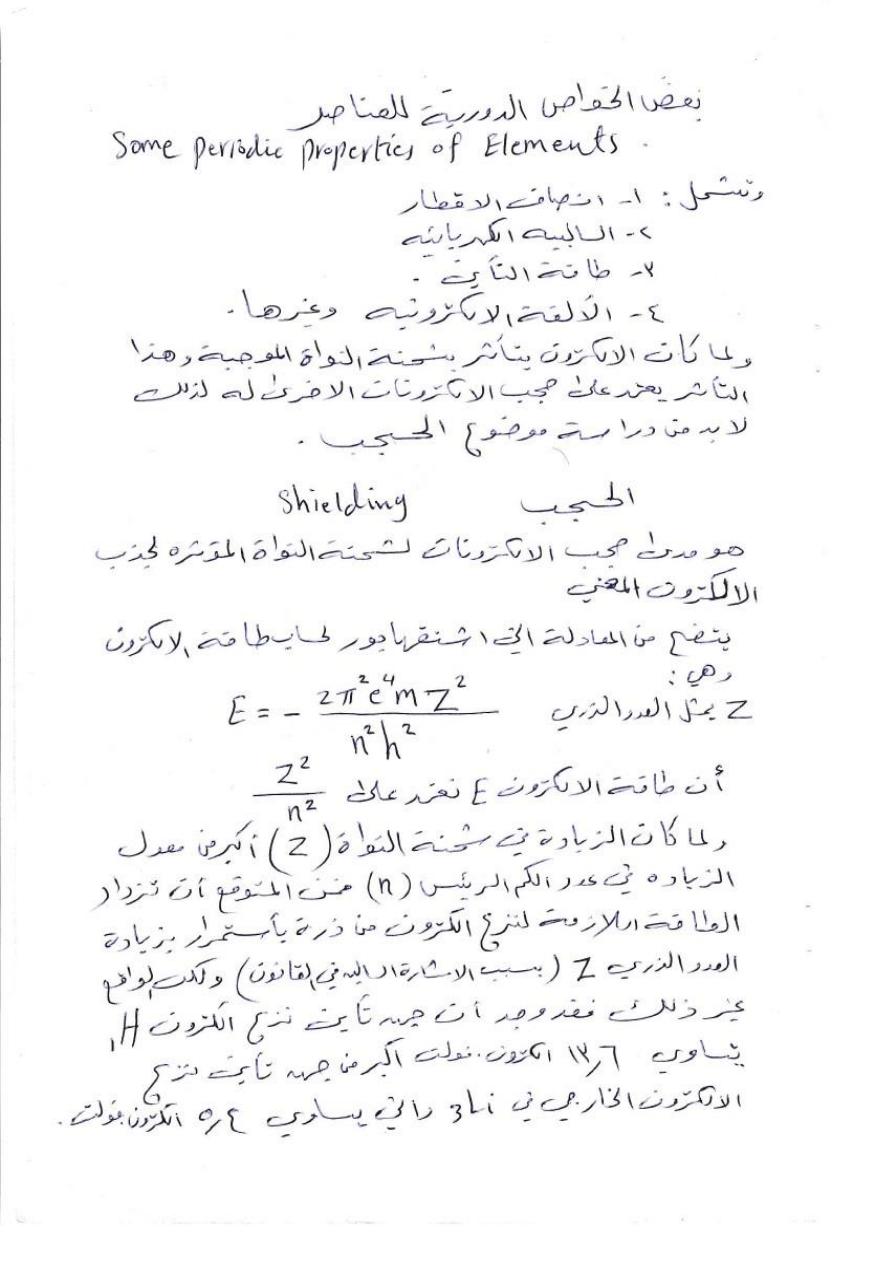 بعض الخواص الدورية للعناصر
Some periodic properties of Elements.
وتشمل: ١- انصاف الاقطار
٢- السالبيه الكهربائيه
٣- طاقة التأين.
٤- الألفة الالكترونيه وغيرها.
ولما كان الالكترون يتأثر بشحنة النواة الموجبة وهذا
التأثر يعتمد على حجب الالكترونات الاخرى له لذلك
لابد من دراسة موضوع الحجب.
الحجب Shielding
هو مدى حجب الالكترونات لشحنة النواة المؤثره لجذب
الالكترون المعني
يتضح من المعادلة التي اشتقها بور لحساب طاقة الالكترون
وهي:
Z يمثل العدد الذري E = - 2π²e⁴mZ² / n²h²
أن طاقة الالكترون E تعتمد على Z² / n²
ولما كان الزيادة في شحنة النواة (Z) أكبر من معدل
الزياده في عدد الكم الرئيس (n) فمن المتوقع أن تزداد
الطاقة اللازمة لنزع الكترون من ذرة بأستمرار بزيادة
العدد الذري Z (بسبب الاشارة السالبه في القانون) ولكن الواقع
غير ذلك فقد وجد أن جهد تأين نزع الكترون ₁H
يساوي ١٣,٦ الكترون.فولت اكبر من جهد تأين نزع
الالكترون الخارجي في ₃Li والتي يساوي ٥,٤ الكترون.فولت.